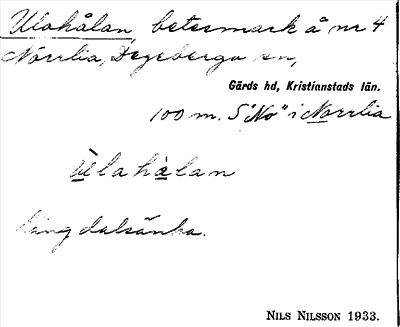 Ulahålan, betesmark å nr 4
Norrlia, Degeberga sn,
Gärds hd, Kristianstads län.
100 m. S "No" i Norrlia
Ùlahàlan
Lång dalsänka.
NILS NILSSON 1933.